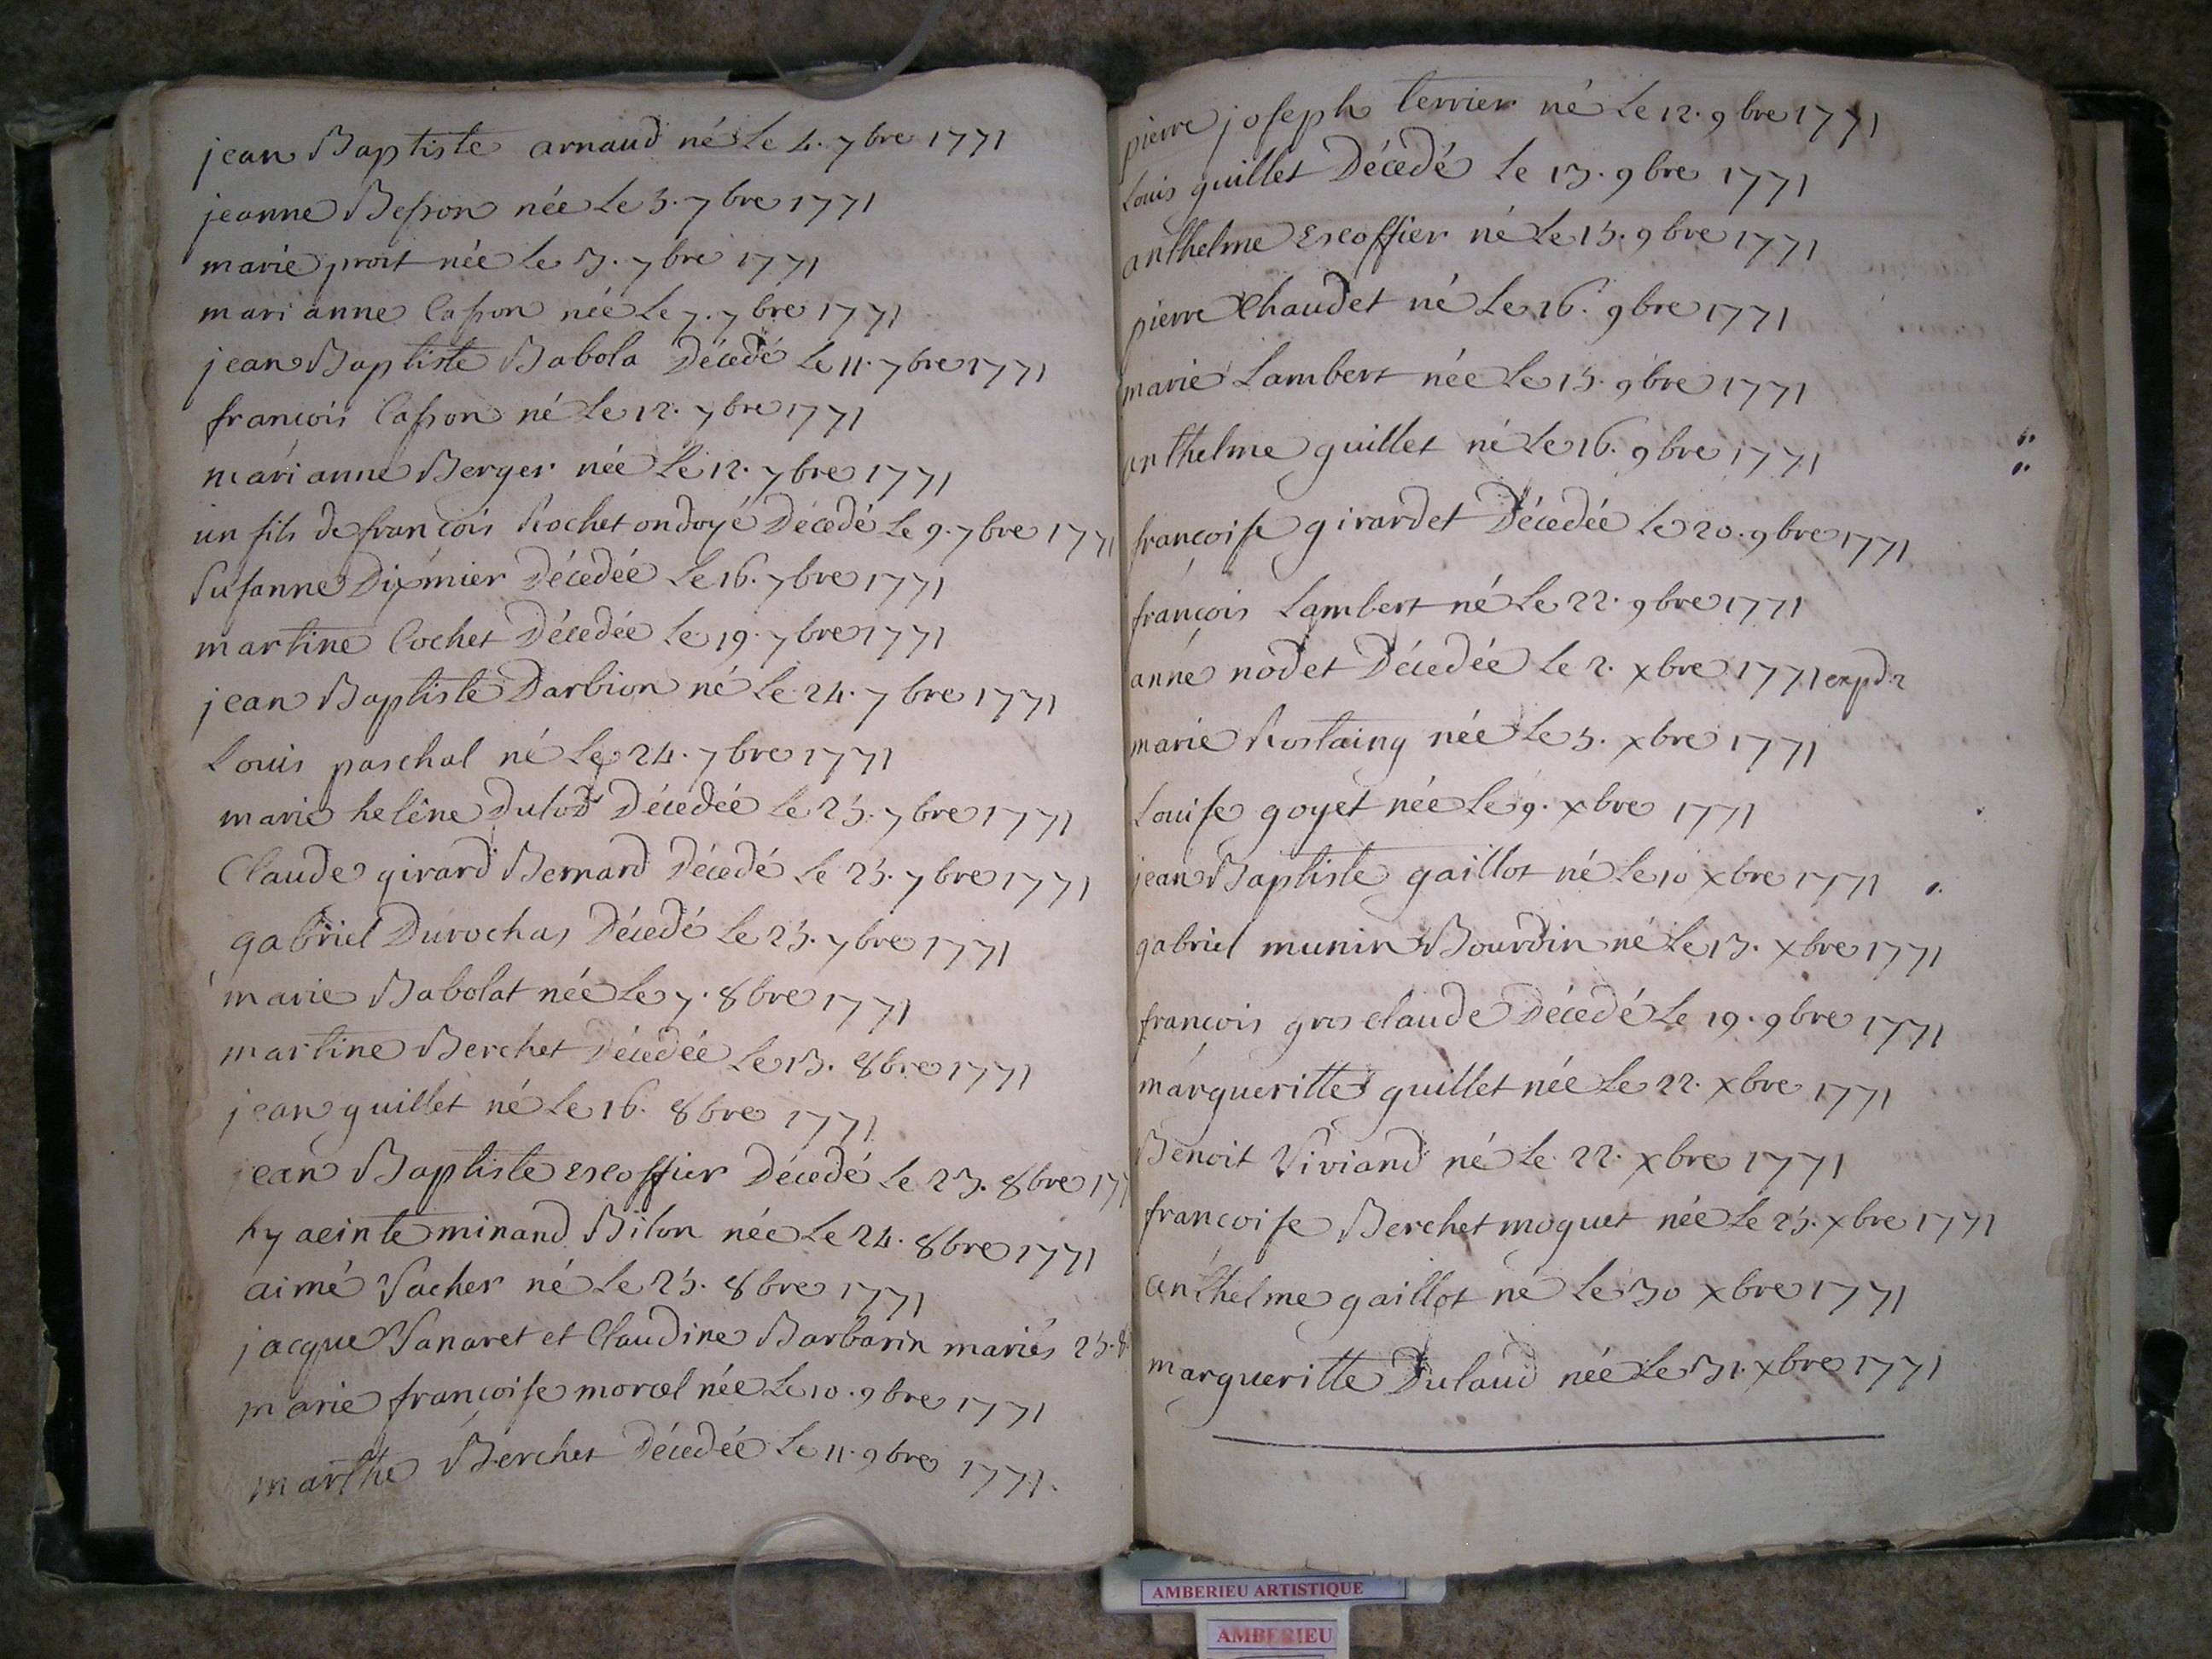 jean Baptiste arnaud né Le 4. 7bre 1771
jeanne Besson née Le 5. 7bre 1771
marie prost née Le 3. 7bre 1771
mari anne Casson née Le 7. 7bre 1771
jean Baptiste Babola Décedé Le 11. 7bre 1771
françois Casson né Le 12. 7bre 1771
mari anne Berger née Le 12. 7bre 1771
un fils de françois Rochet ondoyé Décedé Le 9. 7bre 1771
Susanne Dixmier Décedée Le 16. 7bre 1771
martine Cochet Décedée Le 19. 7bre 1771
jean Baptiste Darbion né Le 24. 7bre 1771
Louis paschal né Le 24. 7bre 1771
marie heléne Dulod Décedée Le 25. 7bre 1771
Claude girard Bernard Décedé Le 25. 7bre 1771
gabriel Durochas Décedé Le 25. 7bre 1771
marie Babolat née Le 7. 8bre 1771
martine Berchet Décedée Le 13. 8bre 1771
jean guillet né Le 16. 8bre 1771
jean Baptiste escoffier Décedé Le 23. 8bre 177
hyacinte minand Bilon née Le 24. 8bre 1771
aimé Vacher né Le 25. 8bre 1771
jacque Vanaret et Claudine Barbarin mariés 25. 8
marie françoise morcel née Le 10. 9bre 1771
marthe Berchet Décedée Le 11. 9bre 1771.
pierre joseph terrier né Le 12. 9bre 1771
Louis guillet Décedé Le 13. 9bre 1771
anthelme Escoffier né Le 15. 9bre 1771
pierre Chaudet né Le 16. 9bre 1771
marie Lambert née Le 15. 9bre 1771
anthelme guillet né Le 16. 9bre 1771
françoise girardet Décedée Le 20. 9bre 1771
françois Lambert né Le 22. 9bre 1771
anne nodet Décedée Le 2. xbre 1771 expd.
marie Rostaing née Le 5. xbre 1771
Louise goyet née Le 9. xbre 1771
jean Baptiste gaillot né Le 10 xbre 1771
gabriel munin Bourdin né Le 13. xbre 1771
françois gros claude Décedé Le 19. 9bre 1771
margueritte guillet née Le 22. xbre 1771
Benoit Viviand né Le 22. xbre 1771
françoise Berchet moguet née Le 25. xbre 1771
anthelme gaillot né Le 30 xbre 1771
margueritte Dulaud née Le 31. xbre 1771
AMBERIEU ARTISTIQUE
AMBERIEU